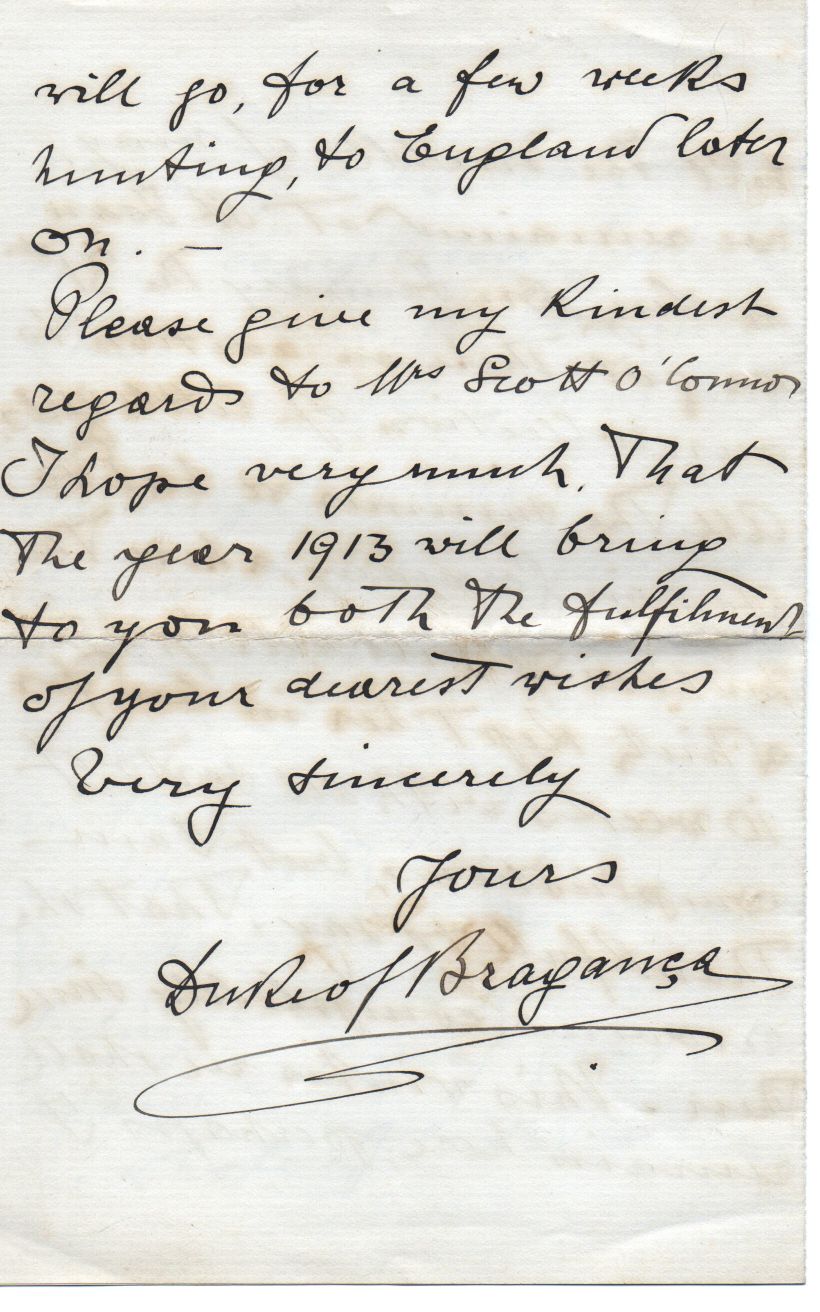 will go, for a few weeks
hunting, to England later
on. —
Please give my kindest
regards to Mrs Scott O'Connor
I hope very much, that
the year 1913 will bring
to you both the fulfilment
of your dearest wishes
Very sincerely
Yours
Duke of Bragança